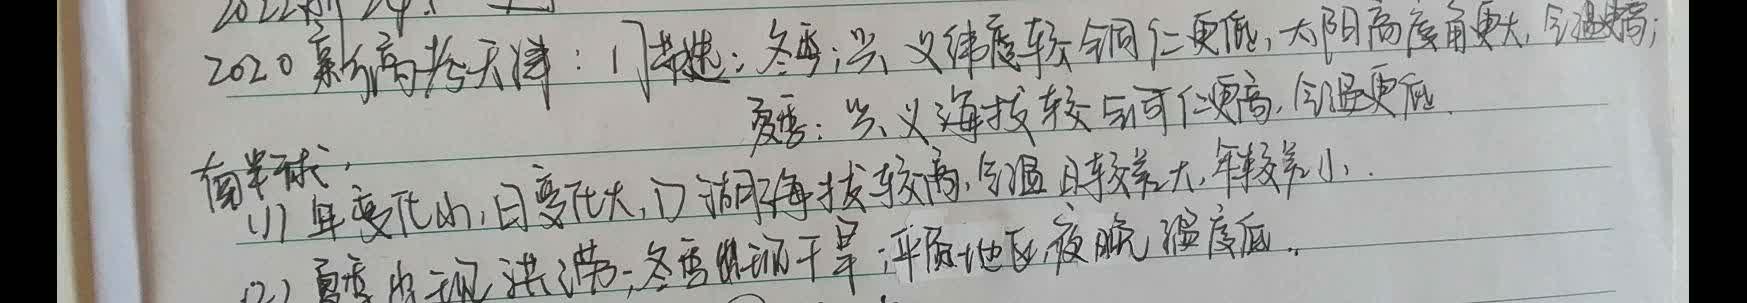 2020 新高考天津：(1) 描述：冬季：兴义纬度较铜仁更低，太阳高度角更大，气温更高；
夏季：兴义海拔较铜仁更高，气温更低．
南半球，
(1) 年变化小，日变化大，湖海拔较高，气温日较差大，年较差小．
(2) 夏季出现洪涝；冬季出现干旱；平原地区夜晚温度低．